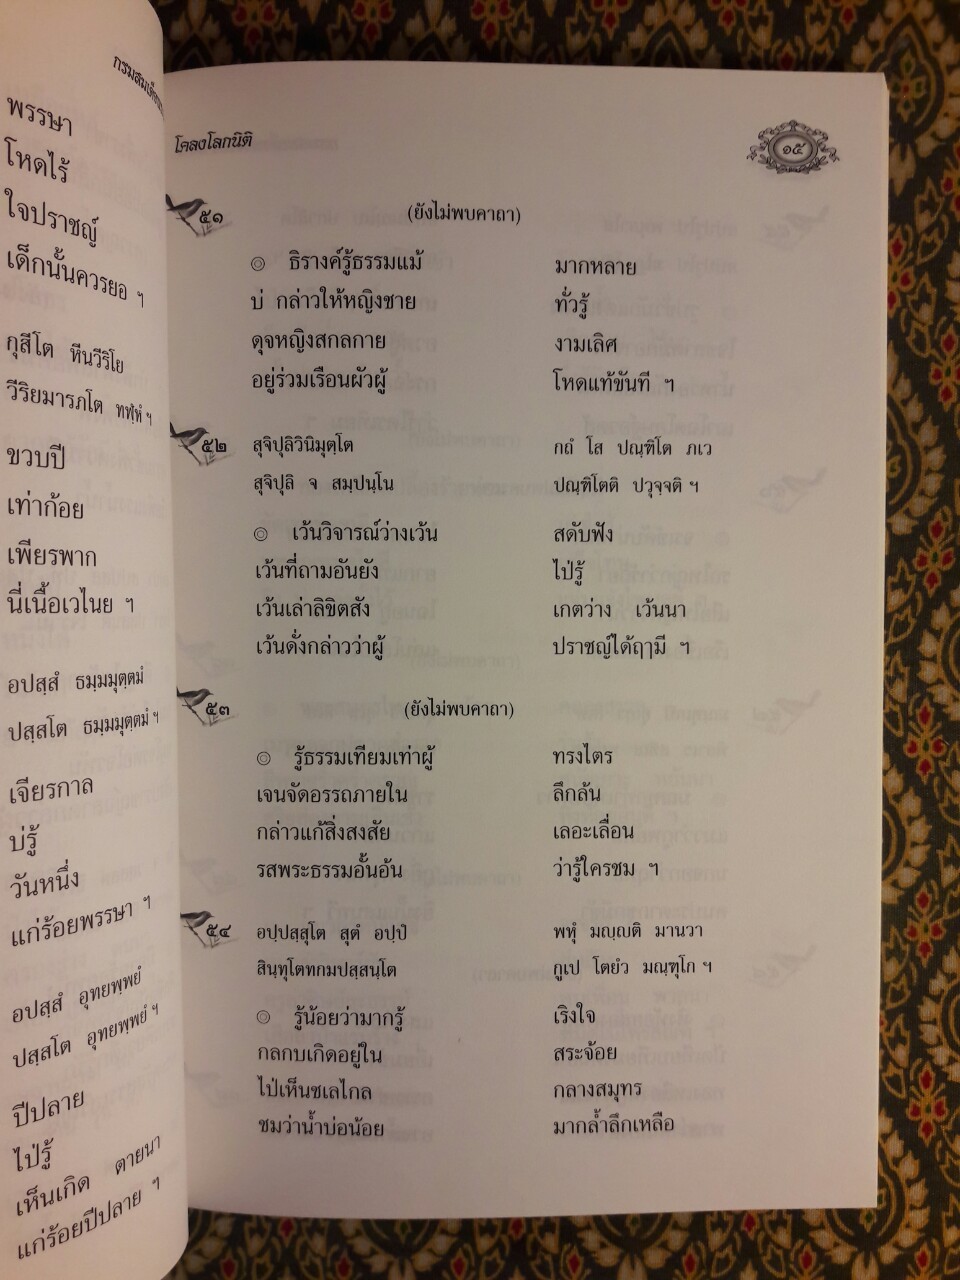 กรมสมเด็จ
พรรษา
โหดไร้
ใจปราชญ์
เด็กนั้นควรยอ ฯ
กุสีโต หีนวีริโย
วีริยมารภโต ทฬฺหํ ฯ
ขวบปี
เท่าก้อย
เพียรพาก
นี่เนื้อเวไนย ฯ
อปสฺสํ ธมฺมมุตฺตมํ
ปสฺสโต ธมฺมมุตฺตมํ ฯ
เจียรกาล
บ่รู้
วันหนึ่ง
แก่ร้อยพรรษา ฯ
อปสฺสํ อุทยพฺพยํ
ปสฺสโต อุทยพฺพยํ ฯ
ปีปลาย
ไป่รู้
เห็นเกิด ตายนา
แก่ร้อยปีปลาย ฯ
โคลงโลกนิติ ๑๕
๕๑ (ยังไม่พบคาถา)
๏ ธิรางค์รู้ธรรมแม้ มากหลาย
บ่ กล่าวให้หญิงชาย ทั่วรู้
ดุจหญิงสกลกาย งามเลิศ
อยู่ร่วมเรือนผัวผู้ โหดแท้ขันที ฯ
๕๒ สุจิปุลิวินิมุตฺโต กถํ โส ปณฺฑิโต ภเว
สุจิปุลิ จ สมฺปนฺโน ปณฺฑิโตติ ปวุจฺจติ ฯ
๏ เว้นวิจารณ์ว่างเว้น สดับฟัง
เว้นที่ถามอันยัง ไป่รู้
เว้นเล่าลิขิตสัง เกตว่าง เว้นนา
เว้นดั่งกล่าวว่าผู้ ปราชญ์ได้ฤๅมี ฯ
๕๓ (ยังไม่พบคาถา)
๏ รู้ธรรมเทียมเท่าผู้ ทรงไตร
เจนจัดอรรถภายใน ลึกล้น
กล่าวแก้สิ่งสงสัย เลอะเลื่อน
รสพระธรรมอั้นอ้น ว่ารู้ใครชม ฯ
๕๔ อปฺปสฺสุโต สุตํ อปฺปํ พหุํ มญฺญติ มานวา
สินฺทุโตทกมปสฺสนฺโต กูเป โตยํว มณฺฑุโก ฯ
๏ รู้น้อยว่ามากรู้ เริงใจ
กลกบเกิดอยู่ใน สระจ้อย
ไป่เห็นชเลไกล กลางสมุทร
ชมว่าน้ำบ่อน้อย มากล้ำลึกเหลือ